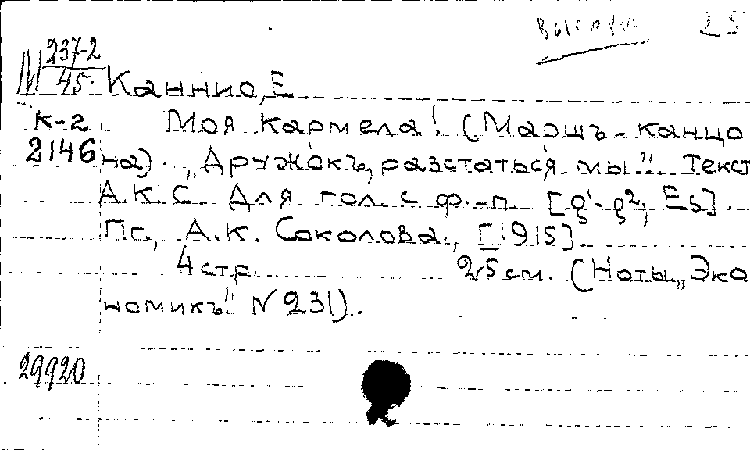 25
М 237-2
45.
Каннио, Е
К-2
2146
Моя Кармела! (Маршъ-канцо
на). „Дружокъ, разстаться мы". Текст
А.К.С. Для гол. с ф.-п. [g¹-g², Es].
Пг., А.К. Соколова, [1915]
4 стр. 25 см. (Ноты „Эко
номикъ" N 231).
29920